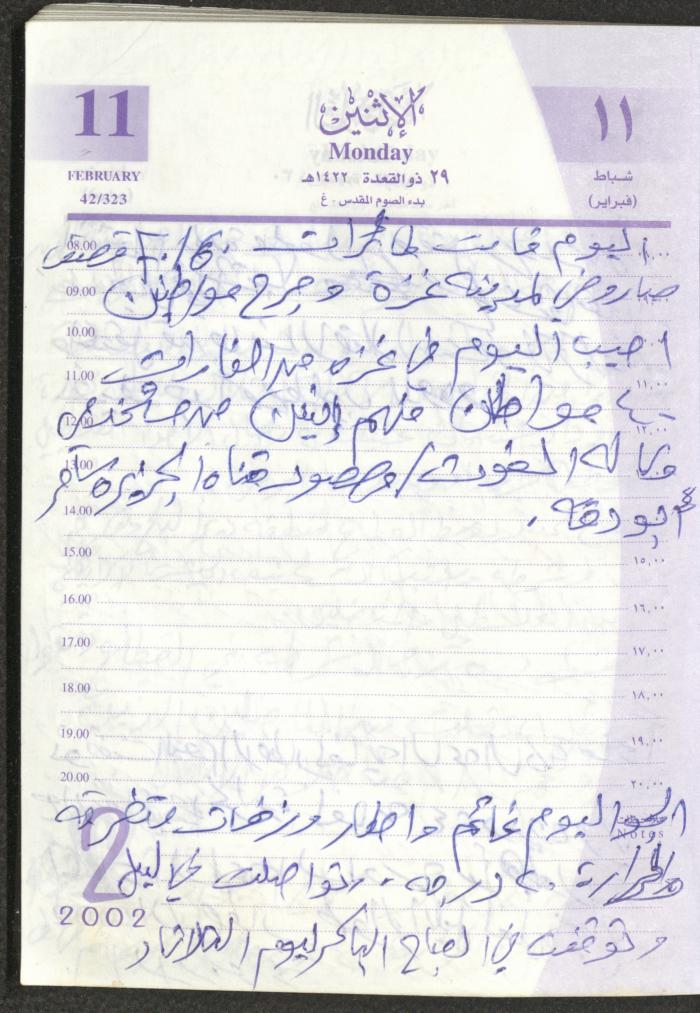 11
FEBRUARY
42/323
الإثنين
Monday
٢٩ ذوالقعدة ١٤٢٢هـ
بدء الصوم المقدس - غ
١١
شباط
(فبراير)
08.00 اليوم قامت طائرات F.16 بقصف
09.00 صاروخي لمدينة غزة وجرح مواطنين
10.00 اصيب اليوم في غزة من الغارات
11.00 ١١,٠٠
12.00 مواطن منهم إثنين من مستخدمي ١٢,٠٠
13.00 وكالة الغوث / ومصور قناة الجزيرة
14.00 ابو دقه .
15.00 ١٥,٠٠
16.00 ١٦,٠٠
17.00 ١٧,٠٠
18.00 ١٨,٠٠
19.00 ١٩,٠٠
20.00 ٢٠,٠٠
الجو اليوم غائم وامطار وزخات متفرقة
Notes
والحرارة ٢٠ درجه . وتواصلت في الليل
2
2002
وتوقفت في الصباح الباكر ليوم الثلاثاء